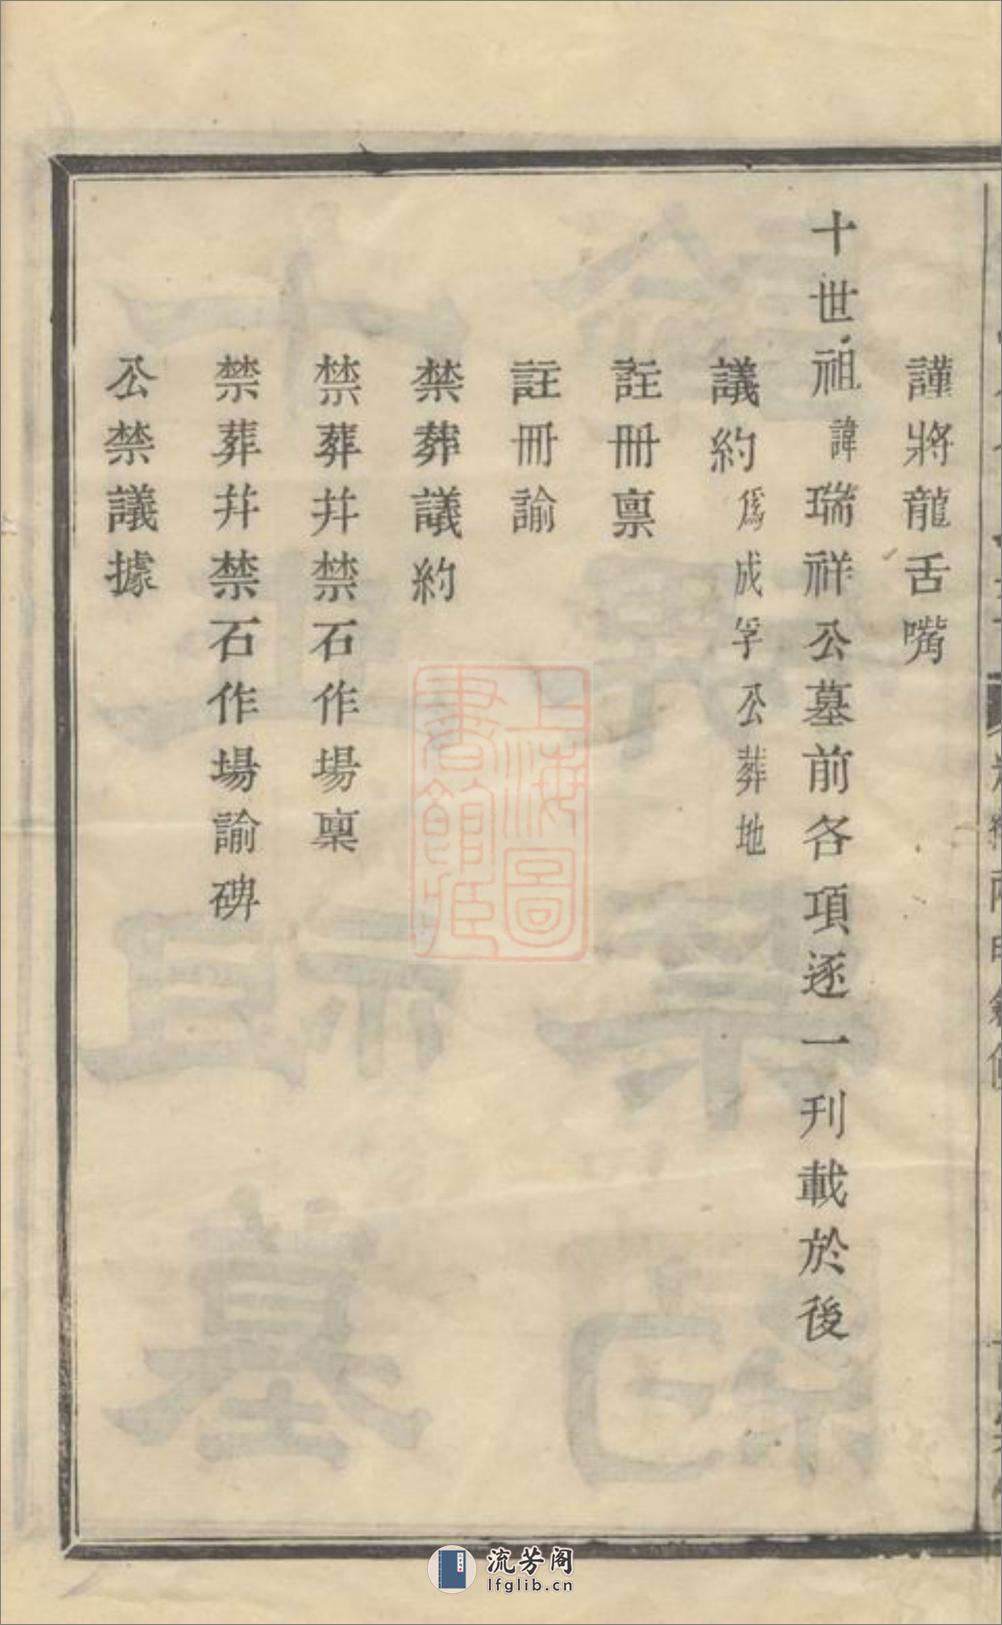 謹將龍舌嘴
十世祖諱瑞祥公墓前各項逐一刊載於後
議約爲成孚公葬地
註冊禀
註冊諭
禁葬議約
禁葬幷禁石作場稟
禁葬幷禁石作場諭碑
公禁議據
上海圖
書館藏
流芳阁
lfglib.cn